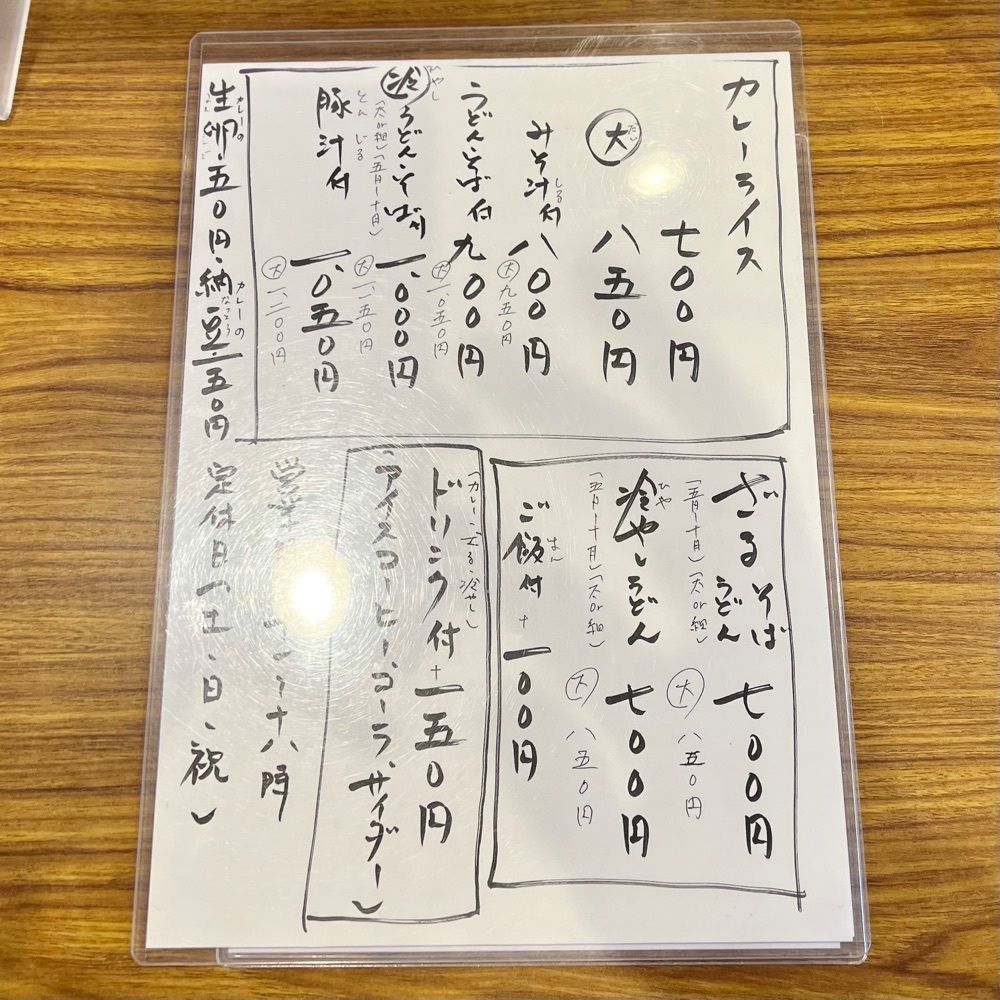 カレーライス 七〇〇円
大 だい 八五〇円
みそ汁付 しる 八〇〇円
大 九五〇円
うどん・そば付 九〇〇円
大 一、〇五〇円
冷 ひやし うどん・そば付 一、〇〇〇円
(太or細)(五月〜十月)
大 一、一五〇円
豚汁付 とんじる 一、〇五〇円
大 一、二〇〇円
カレーの生卵・五〇円、カレーの納豆・一五〇円 なっとう
ざるそば うどん 七〇〇円
(五月〜十月)(太or細)
大 八五〇円
冷やしうどん ひや 七〇〇円
(五月〜十月)(太or細)
大 八五〇円
ご飯付 はん + 一〇〇円
(カレー、ざる、冷やし)
ドリンク付 + 一五〇円
(アイスコーヒー、コーラ、サイダー)
〜十八時
定休日(土・日・祝)